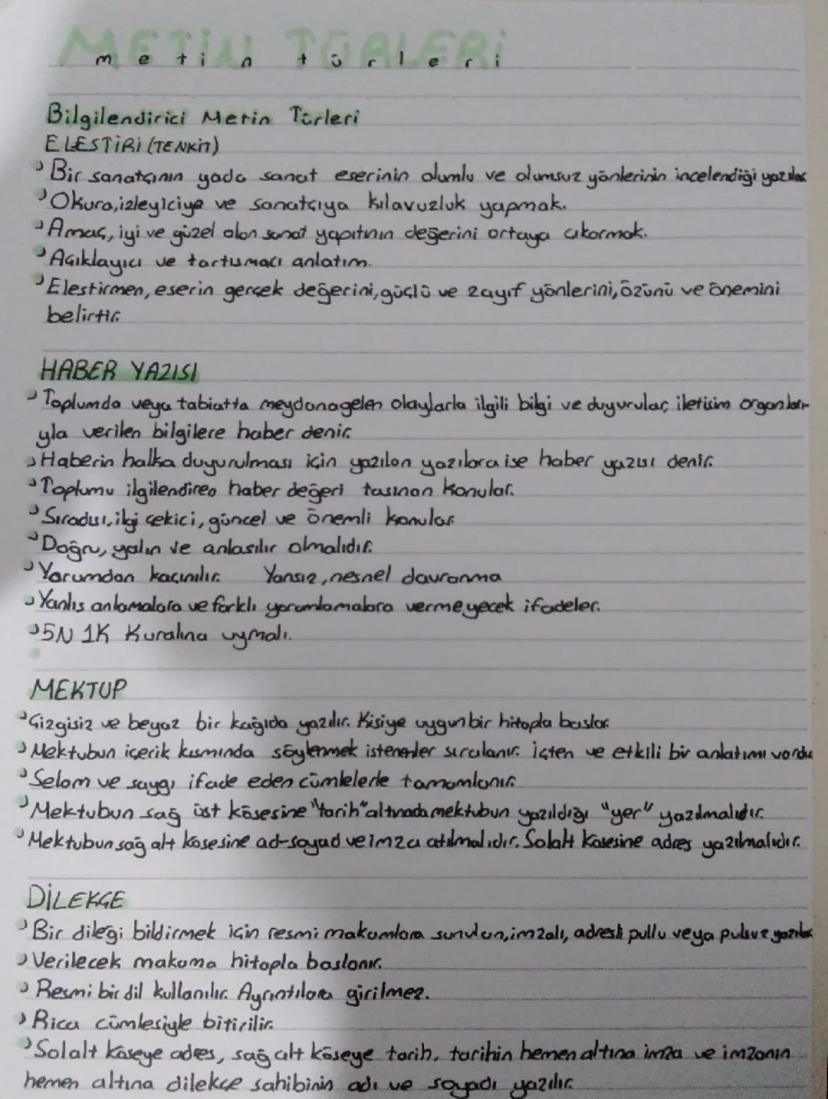 METİN TÜRLERİ
metin türleri
Bilgilendirici Metin Türleri
ELESTİRİ (TENKİT)
Bir sanatçının yada sanat eserinin olumlu ve olumsuz yönlerinin incelendiği yazılar
Okura, izleyiciye ve sanatçıya kılavuzluk yapmak.
Amaç, iyi ve güzel olan sanat yapıtnın değerini ortaya çıkarmak.
Açıklayıcı ve tartısmacı anlatım.
Elestirmen, eserin gerçek değerini, güçlü ve zayıf yönlerini, özünü ve önemini
belirtir.
HABER YAZISI
Toplumda veya tabiatta meydana gelen olaylarla ilgili bilgi ve duyurular, iletisim organları-
yla verilen bilgilere haber denir.
Haberin halka duyurulması için yazılan yazılara ise haber yazısı denir.
Toplumu ilgilendiren haber değeri tasınan konular.
Sıradısı, ilgi çekici, güncel ve önemli konular
Doğru, yalın ve anlasılır olmalıdır.
Yorumdan kaçınılır. Yansız, nesnel davranma
Yanlıs anlamalara ve farklı yorumlamalara vermeyecek ifadeler.
5N 1K Kuralına uymalı.
MEKTUP
Çizgisiz ve beyaz bir kağıda yazılır. Kisiye uygun bir hitapla baslar.
Mektubun içerik kısmında söylenmek istenenler sıralanır. İçten ve etkili bir anlatımı vardır
Selam ve saygı ifade eden cümlelerle tamamlanır.
Mektubun sağ üst kösesine "tarih" altınada mektubun yazıldığı "yer" yazılmalıdır.
Mektubun sağ alt kösesine ad-soyad ve imza atılmalıdır. Sol alt kösesine adres yazılmalıdır.
DİLEKÇE
Bir dileği bildirmek için resmi makamlara sunulan, imzalı, adresli pullu veya pulsuz yazılar
Verilecek makama hitapla baslanır.
Resmi bir dil kullanılır. Ayrıntılara girilmez.
Rica cümlesiyle bitirilir.
Sol alt köseye adres, sağ alt köseye tarih, tarihin hemen altına imza ve imzanın
hemen altına dilekçe sahibinin adı ve soyadı yazılır.